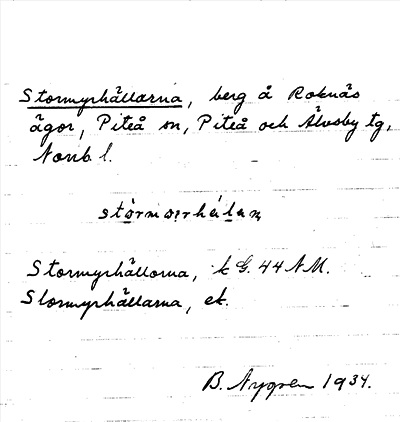 Stormyrhällarna, berg å Roknäs
ägor, Piteå sn, Piteå och Älvsby tg,
Norrb. l.
Stormyrhällorna, k G. 44 NM.
Stormyrhällarna, ek.
B. Nygren 1934.